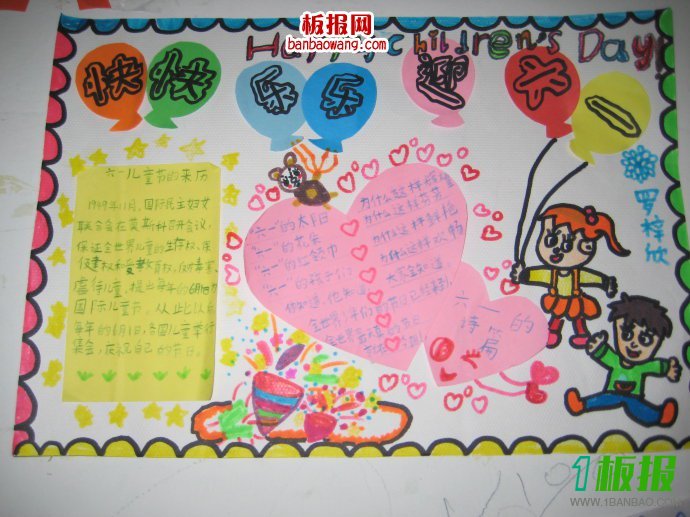 板报网
banbaowang.com
Happy Children's Day
快快乐乐迎六一
罗梓欣
六一儿童节的来历
1949年11月,国际民主妇女
联合会在莫斯科召开会议,
保证全世界儿童的生存权、保
虐待儿童,提出每年的6月1日为
国际儿童节。从此以后
每年的6月1日,各国儿童举行
集会,庆祝自己的节日。
"六一"的太阳
为什么这样辉煌
"六一"的花朵
为什么这样芬芳
"六一"的红领巾
为什么这样鲜艳
"六一"的孩子们
为什么这样欢畅
你知道,他知道
大家全知道
六一的
诗篇
1板报
WWW.1BANBAO.COM